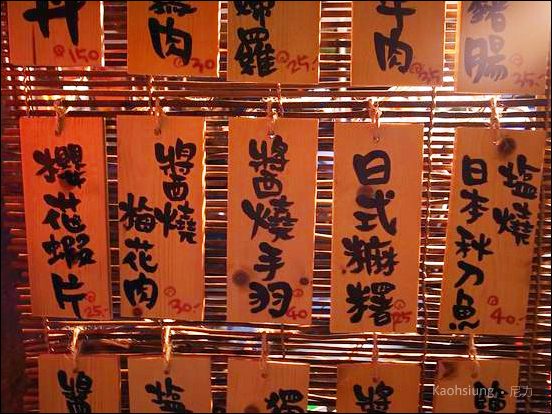 丼 @150
肉 @30
螺 @25.-
牛肉 @35
豬腸 @35.-
櫻花蝦片 @25.-
醬燒
梅花肉 @30.-
醬燒手羽 @40
日式麻糬 @25
塩燒
日本秋刀魚 @40.-
醬
塩
醬
Kaohsiung · 尼力